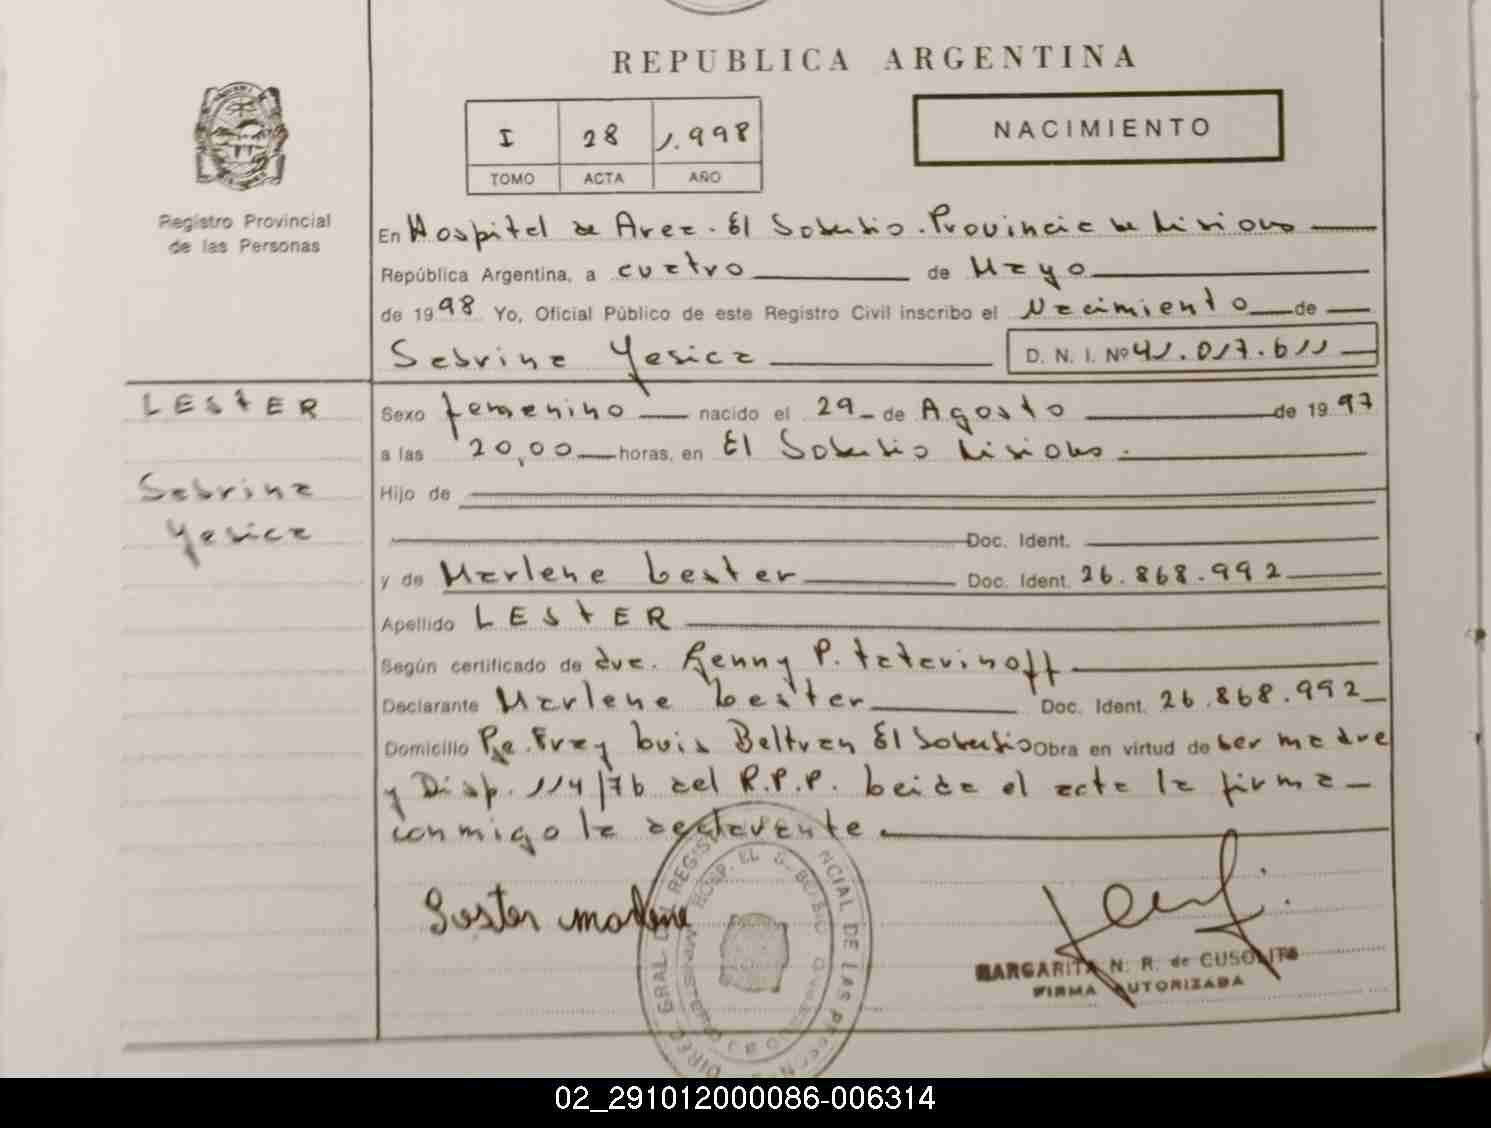 REPUBLICA ARGENTINA
I 28 1.998
TOMO ACTA AÑO
NACIMIENTO
Registro Provincial
de las Personas
En Hospital de Area. El Soberbio. Provincia de Misiones
República Argentina, a cuatro de Mayo
de 1998 Yo, Oficial Público de este Registro Civil inscribo el Nacimiento de
Sabrina Yesica D. N. I. Nº 41.017.611
LESTER
Sabrina
Yesica
Sexo femenino nacido el 29 de Agosto de 1997
a las 20,00 horas, en El Soberbio Misiones.
Hijo de
Doc. Ident.
y de Marlene Lester Doc. Ident. 26.868.992
Apellido LESTER
Según certificado de dra. Renny P. Tatarinoff
Declarante Marlene Lester Doc. Ident. 26.868.992
Domicilio Fray Luis Beltran El Soberbio Obra en virtud de ser madre
y Disp. 114/76 del R.P.P. Leida el acta la firma
conmigo la declarante.
Lester Marlene
MARGARITA N. R. de CUSOLITO
FIRMA AUTORIZADA
HOSP. EL SOBERBIO
02_291012000086-006314